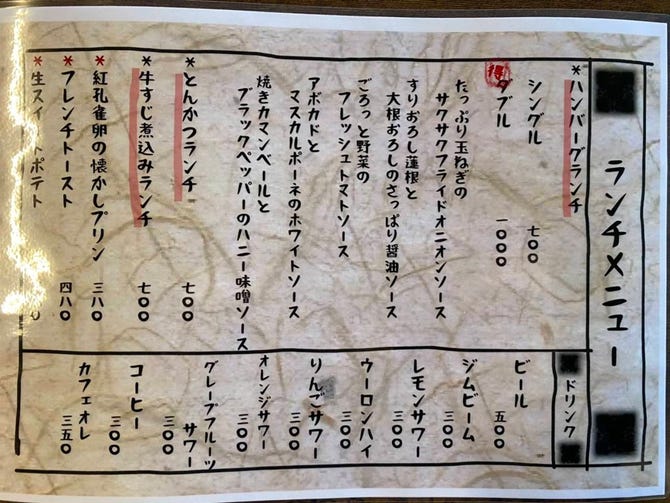 ランチメニュー
*ハンバーグランチ
シングル 七〇〇
得 ダブル 一〇〇〇
たっぷり玉ねぎの
サクサクフライドオニオンソース
すりおろし蓮根と
大根おろしのさっぱり醤油ソース
ごろっと野菜の
フレッシュトマトソース
アボカドと
マスカルポーネのホワイトソース
焼きカマンベールと
ブラックペッパーのハニー味噌ソース
*とんかつランチ 七〇〇
*牛すじ煮込みランチ 七〇〇
*紅孔雀卵の懐かしプリン 三八〇
*フレンチトースト 四八〇
*生スイートポテト
ドリンク
ビール 五〇〇
ジムビーム 三〇〇
レモンサワー 三〇〇
ウーロンハイ 三〇〇
りんごサワー 三〇〇
オレンジサワー 三〇〇
グレープフルーツ
サワー 三〇〇
コーヒー 三〇〇
カフェオレ 三五〇